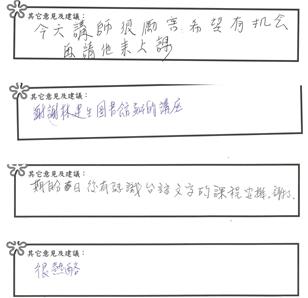 其它意見及建議：
今天講師很勵害希望有机会
再請他来上課
其它意見及建議：
謝謝林邊圖書館辦的講座
其它意見及建議：
期盼 日後有認識台語文字的課程安排,謝謝.
其它意見及建議：
很熱酪